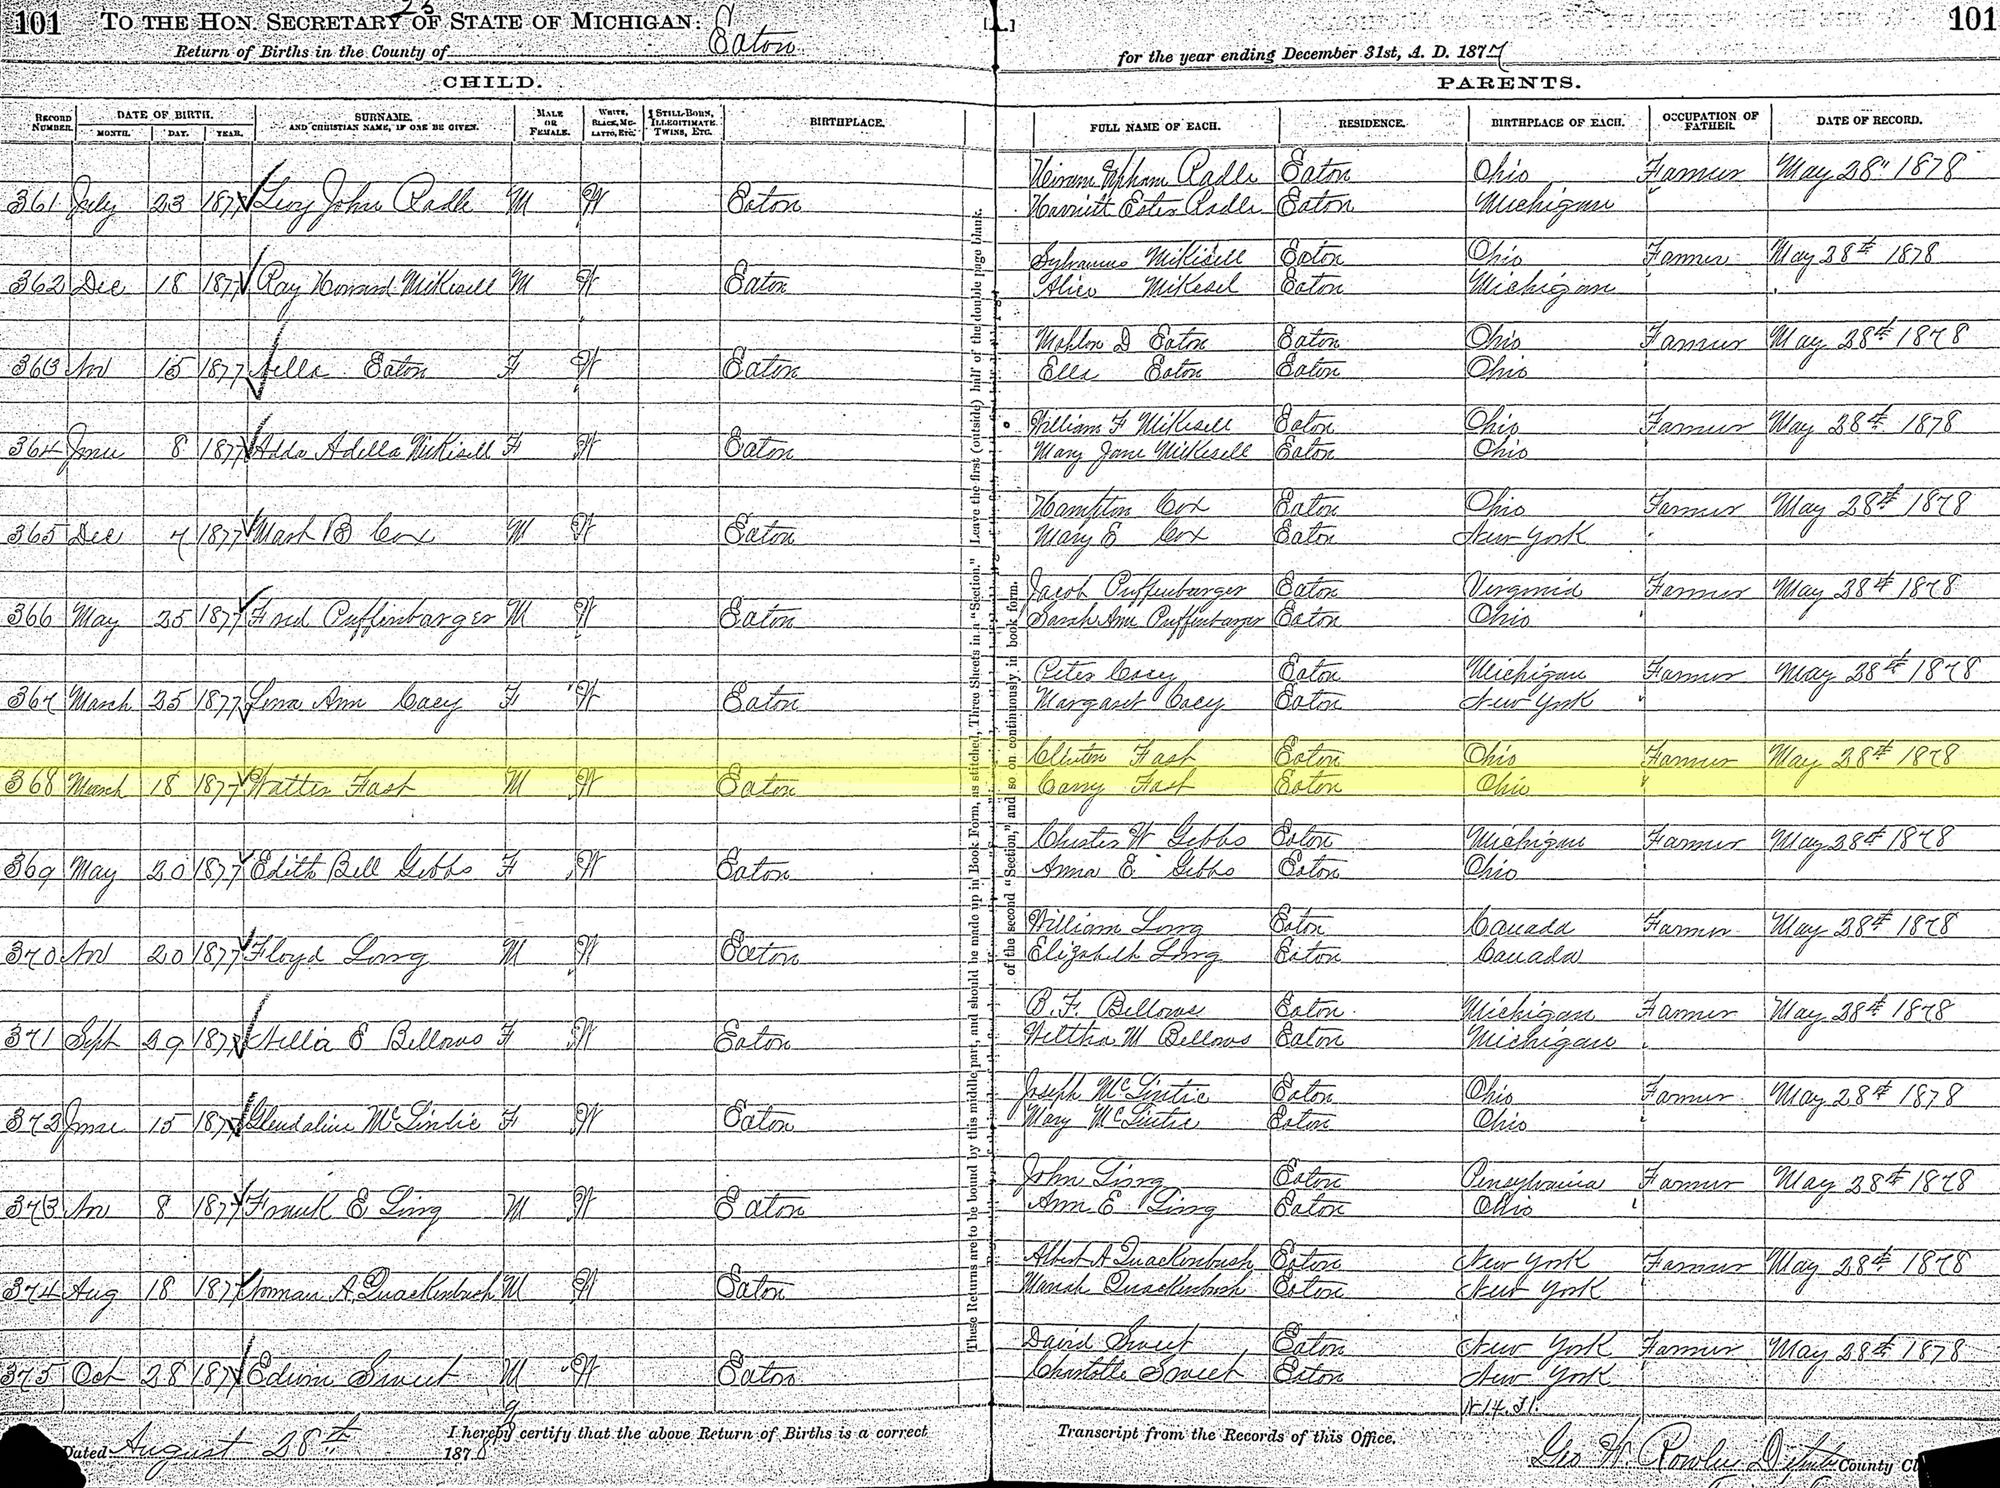 101 TO THE HON. SECRETARY OF STATE OF MICHIGAN: 101
Return of Births in the County of Eaton for the year ending December 31st, A. D. 1877
CHILD. PARENTS.
RECORD NUMBER. DATE OF BIRTH. MONTH. DAY. YEAR. SURNAME. AND CHRISTIAN NAME, IF ONE BE GIVEN. MALE OR FEMALE. WHITE, BLACK, MULATTO, ETC. STILL-BORN, ILLEGITIMATE, TWINS, ETC. BIRTHPLACE. FULL NAME OF EACH. RESIDENCE. BIRTHPLACE OF EACH. OCCUPATION OF FATHER. DATE OF RECORD.
Hiram Radle Eaton Ohio Farmer May 28" 1878
361 July 23 1877 Levy John Radle M W Eaton Harriett Ester Radle Eaton Michigan "
Sylvanus Mikisell Eaton Ohio Farmer May 28th 1878
362 Dec 18 1877 Ray Howard Mikesell M W Eaton Alice Mikesel Eaton Michigan
Mahlon D Eaton Eaton Ohio Farmer May 28th 1878
363 Nov 15 1877 Nella Eaton F W Eaton Ella Eaton Eaton Ohio
William F Mikisell Eaton Ohio Farmer May 28th 1878
364 June 8 1877 Adda Adella Mikisell F W Eaton Mary Jane Mikesell Eaton Ohio
Hampton Cox Eaton Ohio Farmer May 28th 1878
365 Dec 7 1877 Mark B Cox M W Eaton Mary E Cox Eaton New York
Jacob Puffenbarger Eaton Virginia Farmer May 28th 1878
366 May 25 1877 Fred Puffinbarger M W Eaton Sarah Ann Puffenbarger Eaton Ohio
Peter Cacy Eaton Michigan Farmer May 28th 1878
367 March 25 1877 Lena Ann Cacy F W Eaton Margaret Cacy Eaton New York "
Clinton Fast Eaton Ohio Farmer May 28th 1878
368 March 18 1877 Walter Fast M W Eaton Carry Fast Eaton Ohio "
Chester W Gibbs Eaton Michigan Farmer May 28th 1878
369 May 20 1877 Edith Bell Gibbs F W Eaton Anna E Gibbs Eaton Ohio
William Long Eaton Canada Farmer May 28th 1878
370 Nov 20 1877 Floyd Long M W Eaton Elizabeth Long Eaton Canada
B. F. Bellows Eaton Michigan Farmer May 28th 1878
371 Sept 29 1877 E Bellows F W Eaton M Bellows Eaton Michigan
Joseph McLintic Eaton Ohio Farmer May 28th 1878
372 June 15 1877 Glendaline McLintic F W Eaton Mary McLintic Eaton Ohio
John Ling Eaton Pensylvania Farmer May 28th 1878
373 Nov 8 1877 Frank E Ling M W Eaton Ann E Ling Eaton Ohio
Albert A Quackenbush Eaton New York Farmer May 28th 1878
374 Aug 18 1877 Norman A. Quackenbush M W Eaton Mariah Quackenbush Eaton New York
David Sweet Eaton New York Farmer May 28th 1878
375 Oct 28 1877 Edwin Sweet M W Eaton Charlotte Sweet Eaton New York
These Returns are to be bound by this middle part, and should be made up in Book Form, as stitched, Three Sheets in a "Section." Leave the first (outside) half of the double page blank.
of the second "Section," and so on continuously, in book form.
I hereby certify that the above Return of Births is a correct Transcript from the Records of this Office.
Dated August 28th 1878 Geo W. Rowley County